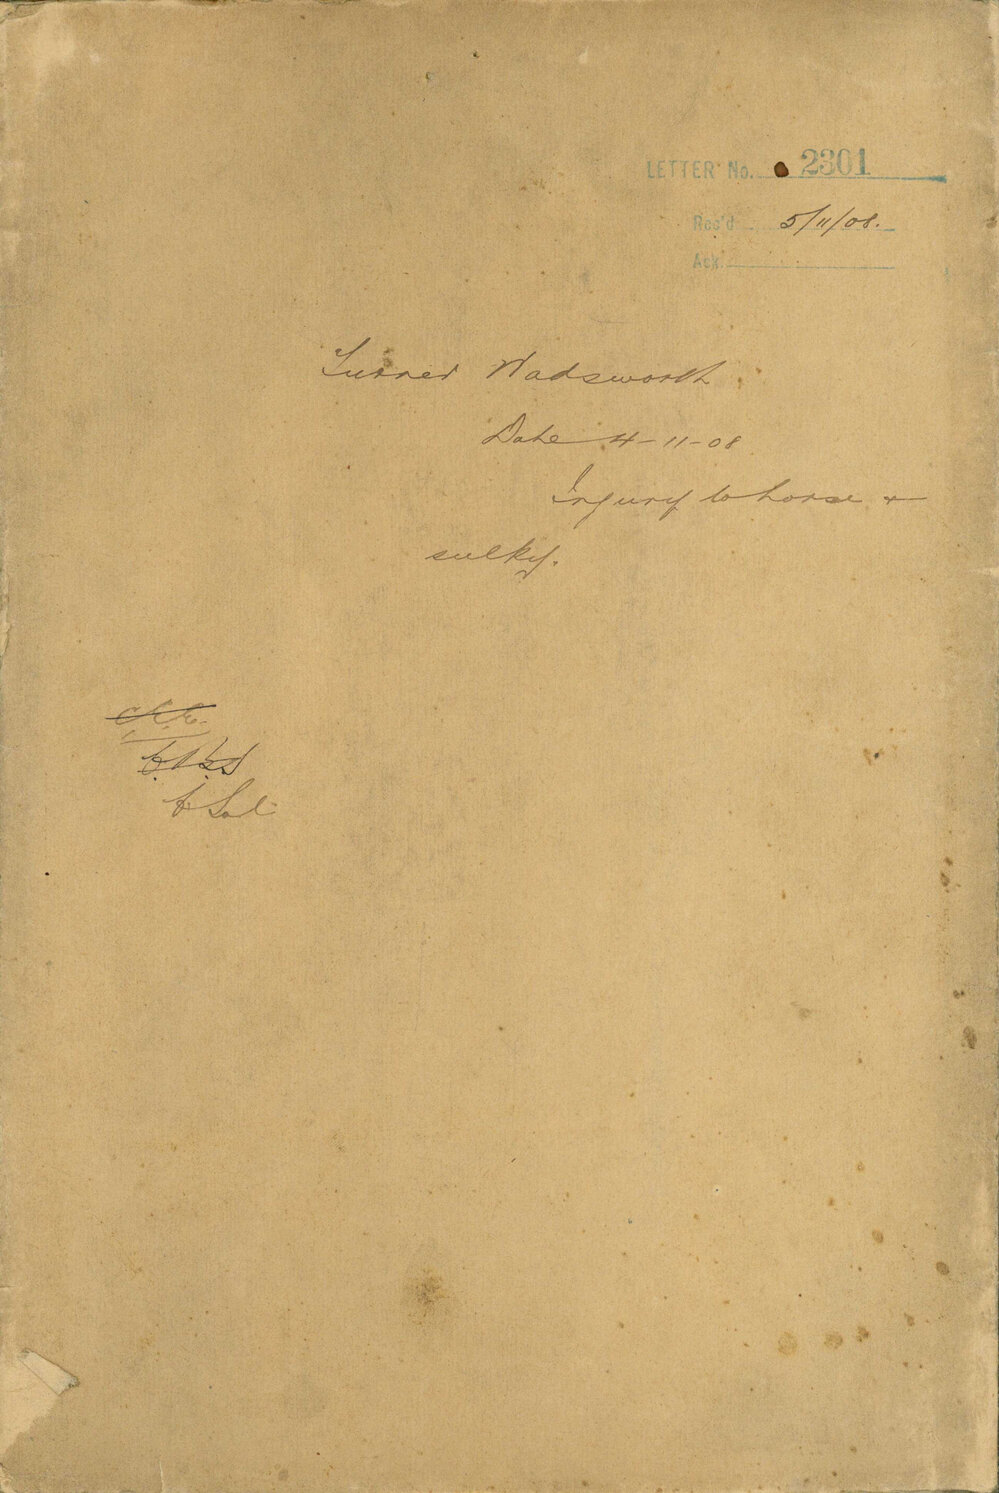 LETTER No. 2301
Rec'd 5/11/08.
Ack.
Turner Wadsworth
Date 4-11-08
Injury to horse +
sulky.